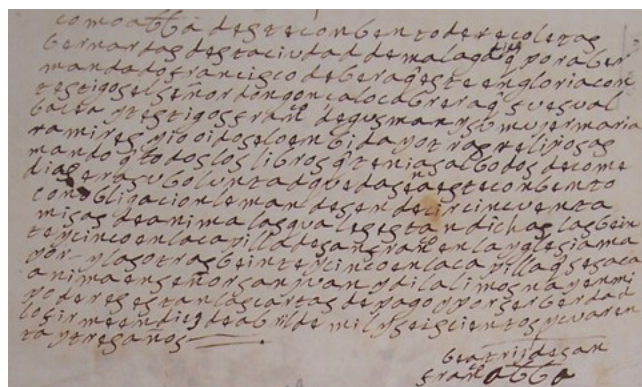 como abba deste conbento de recoletas
bernardas desta ciudad de malaga q por aber
mandado francisco de bera q este en gloria con
testigos el señor don gonçalo cabrera q fue su al
bacea y testigos fran^co de gusman y su mujer maria
ramires y io oi deselo en bida y otras relijiosas
mando q todos los libros q tenia salbo los de come
dias era su boluntad quedasen a este conbento
con obligacion le manden sen decir cincuenta
misas de anima las quales estan dichas las bein
te y cinco en la capilla de san fran^co en la yglesia ma
yor y las otras beinte y cinco en la capilla q se saca
anima en señor san juan y di la limosna y en mi
poder estan las cartas de pago y por ser berdad
lo firme en dies de abril de mil y seiscientos y cuaren
ta y tres años
beatris de san
fran^co abba